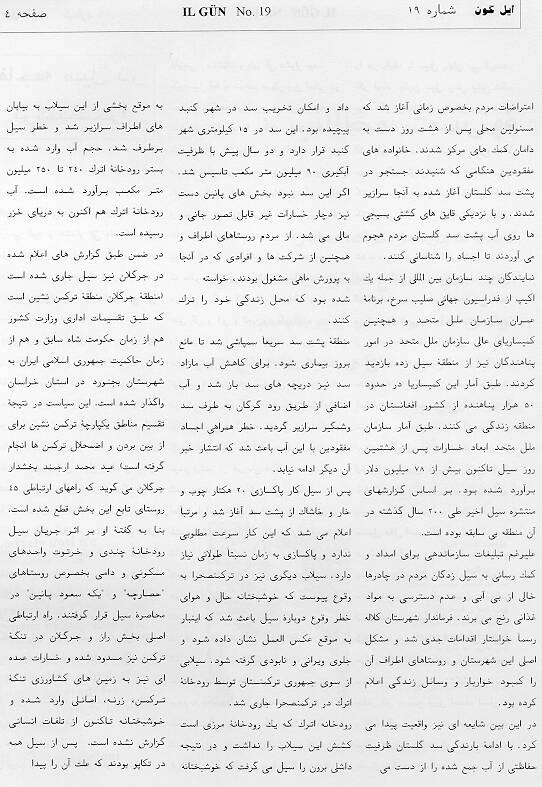 ایل گون شماره ۱۹ IL GÜN No. 19 صفحه ٤
اعتراضات مردم بخصوص زمانی آغاز شد که
مسئولین محلی پس از هشت روز دست به
دامان کمك های مرکز شدند. خانواده های
مفقودین هنگامی که شنیدند جستجو در
پشت سد گلستان آغاز شده به آنجا سرازیر
شدند. و با نزدیکی قایق های گشتی بسیجی
ها روی آب پشت سد گلستان مردم هجوم
می آوردند تا اجساد را شناسائی کنند.
نمایندگان چند سازمان بین المللی از جمله یك
اکیپ از فدراسیون جهانی صلیب سرخ، برنامهٔ
عمران سازمان ملل متحد و همچنین
کمیساریای عالی سازمان ملل متحد در امور
پناهندگان نیز از منطقهٔ سیل زده بازدید
کردند. طبق آمار این کمیساریا در حدود
۵۰ هزار پناهنده از کشور افغانستان در
منطقه زندگی می کنند. طبق آمار سازمان
ملل متحد ابعاد خسارات پس از هشتمین
روز سیل تاکنون بیش از ۷۸ میلیون دلار
برآورد شده بود. بر اساس گزارشهای
منتشره سیل اخیر طی ۲۰۰ سال گذشته در
آن منطقه بی سابقه بوده است.
علیرغم تبلیغات سازماندهی برای امداد و
کمك رسانی به سیل زدگان مردم در چادرها
خالی از بی آبی و عدم دسترسی به مواد
غذائی رنج می برند. فرماندار شهرستان کلاله
رسماً خواستار اقدامات جدی شد و مشکل
اصلی این شهرستان و روستاهای اطراف آن
را کمبود خواربار و وسائل زندگی اعلام
کرده بود.
در این بین شایعه ای نیز واقعیت پیدا می
کرد. با ادامهٔ بارندگی سد گلستان ظرفیت
حفاظتی از آب جمع شده را از دست می
داد و امکان تخریب سد در شهر گنبد
پیچیده بود. این سد در ۱۵ کیلومتری شهر
گنبد قرار دارد و دو سال پیش با ظرفیت
آبگیری ۹۰ میلیون متر مکعب تاسیس شد.
اگر این سد نبود بخش های پائین دست
نیز دچار خسارات غیر قابل تصور جانی و
مالی می شد. از مردم روستاهای اطراف و
همچنین از شرکت ها و افرادی که در آنجا
به پرورش ماهی مشغول بودند، خواسته
شده بود که محل زندگی خود را ترك
کنند.
منطقه پشت سد سریعاً سمپاشی شد تا مانع
بروز بیماری شود. برای کاهش آب مازاد
سد نیز دریچه های سد باز شد و آب
اضافی از طریق رود گرگان به طرف سد
وشمگیر سرازیر گردید. خطر همراهی اجساد
مفقودین با این آب باعث شد که انتشار خبر
آن دیگر ادامه نیابد.
پس از سیل کار پاکسازی ۲۰ هکتار چوب و
خار و خاشاك از پشت سد آغاز شد و مرتبا
اعلام می شد که این کار سرعت مطلوبی
ندارد و پاکسازی به زمان نسبتاً طولانی نیاز
دارد. سیلاب دیگری نیز در ترکمنصحرا به
وقوع پیوست که خوشبختانه حال و هوای
خطر وقوع دوبارهٔ سیل باعث شد که اینبار
به موقع عکس العمل نشان داده شود و
جلوی ویرانی و نابودی گرفته شود. سیلابی
از سوی جمهوری ترکمنستان توسط رودخانهٔ
اترك در ترکمنصحرا جاری شد.
رودخانه اترك که یك رودخانهٔ مرزی است
کشش این سیلاب را نداشت و در نتیجه
داشلی برون را سیل می گرفت که خوشبختانه
به موقع بخشی از این سیلاب به بیابان
های اطراف سرازیر شد و خطر سیل
برطرف شد. حجم آب وارد شده به
بستر رودخانهٔ اترك ۲٤۰ تا ۲۵۰ میلیون
متر مکعب برآورد شده است. آب
رودخانهٔ اترك هم اکنون به دریای خزر
رسیده است.
در ضمن طبق گزارش های اعلام شده
در جرگلان نیز سیل جاری شده است
(منطقهٔ جرگلان منطقهٔ ترکمن نشین است
که طبق تقسیمات اداری وزارت کشور
هم از زمان حکومت شاه سابق و هم از
زمان حاکمیت جمهوری اسلامی ایران به
شهرستان بجنورد در استان خراسان
واگذار شده است. این سیاست در نتیجهٔ
تقسیم مناطق یکپارچهٔ ترکمن نشین برای
از بین بردن و اضمحلال ترکمن ها انجام
گرفته است) عید محمد ارجمند بخشدار
جرگلان می گوید که راههای ارتباطی ٤۵
روستای تابع این بخش قطع شده است.
بنا به گفتهٔ او بر اثر جریان سیل
رودخانهٔ چندی و خرتوت واحدهای
مسکونی و دامی بخصوص روستاهای
"حصارچه" و "یکه سعود پائین" در
محاصرهٔ سیل قرار گرفتند. راه ارتباطی
اصلی بخش راز و جرگلان در تنگهٔ
ترکمن نیز مسدود شده و خسارات عمده
ای نیز به زمین های کشاورزی تنگهٔ
ترکمن، زرنه، امانلی وارد شده و
خوشبختانه تاکنون از تلفات انسانی
گزارش نشده است. پس از سیل همه
در تکاپو بودند که علت آن را پیدا